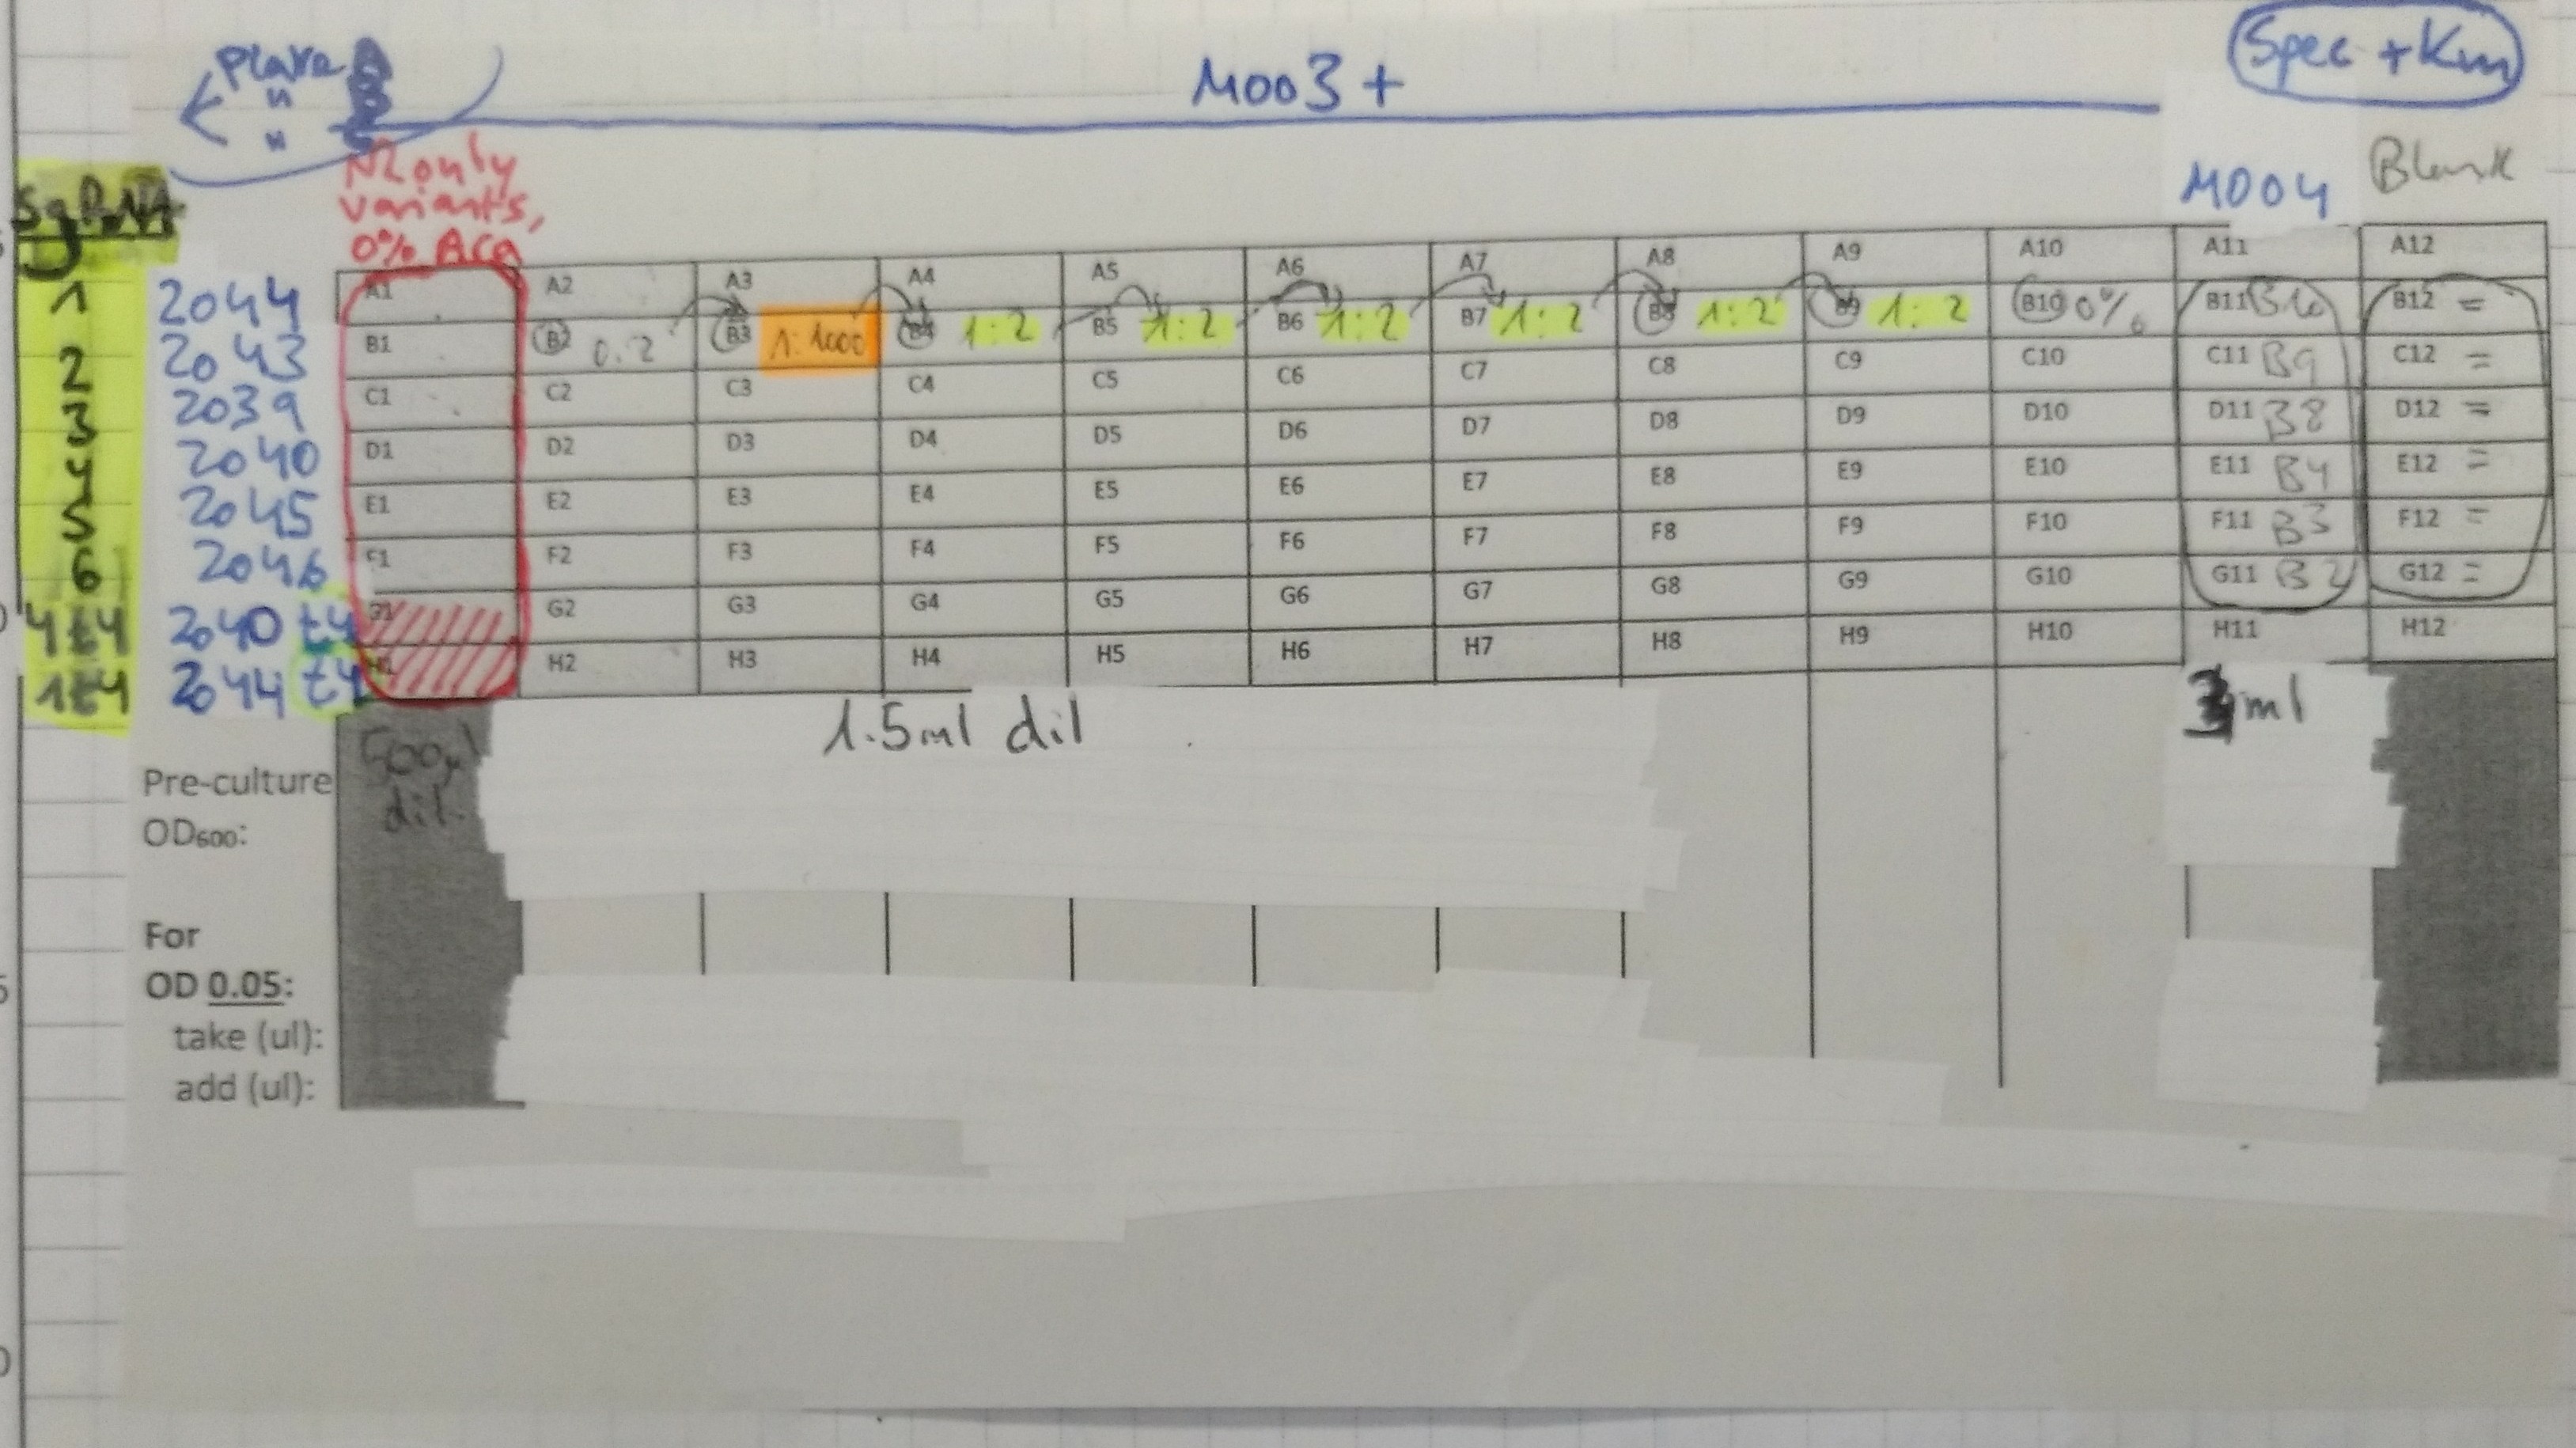 Spec + Km
M003 +
Plate
"
"
M004 Blank
N2 only
variants,
0% Aca
SgRNA
1 2044 A1 A2 A3 A4 A5 A6 A7 A8 A9 A10 A11 A12
2 2043 B1 B2 0.2 B3 1:1000 B4 1:2 B5 1:2 B6 1:2 B7 1:2 B8 1:2 B9 1:2 B10 0% B11 B10 B12 =
3 2039 C1 C2 C3 C4 C5 C6 C7 C8 C9 C10 C11 B9 C12 =
4 2040 D1 D2 D3 D4 D5 D6 D7 D8 D9 D10 D11 B8 D12 =
5 2045 E1 E2 E3 E4 E5 E6 E7 E8 E9 E10 E11 B4 E12 =
6 2046 F1 F2 F3 F4 F5 F6 F7 F8 F9 F10 F11 B3 F12 =
4 t4 2040 t4 G1 G2 G3 G4 G5 G6 G7 G8 G9 G10 G11 B2 G12 =
1 t4 2044 t4 H1 H2 H3 H4 H5 H6 H7 H8 H9 H10 H11 H12
500µl 1.5ml dil 3ml
dil.
Pre-culture
OD600:
For
OD 0.05:
take (ul):
add (ul):